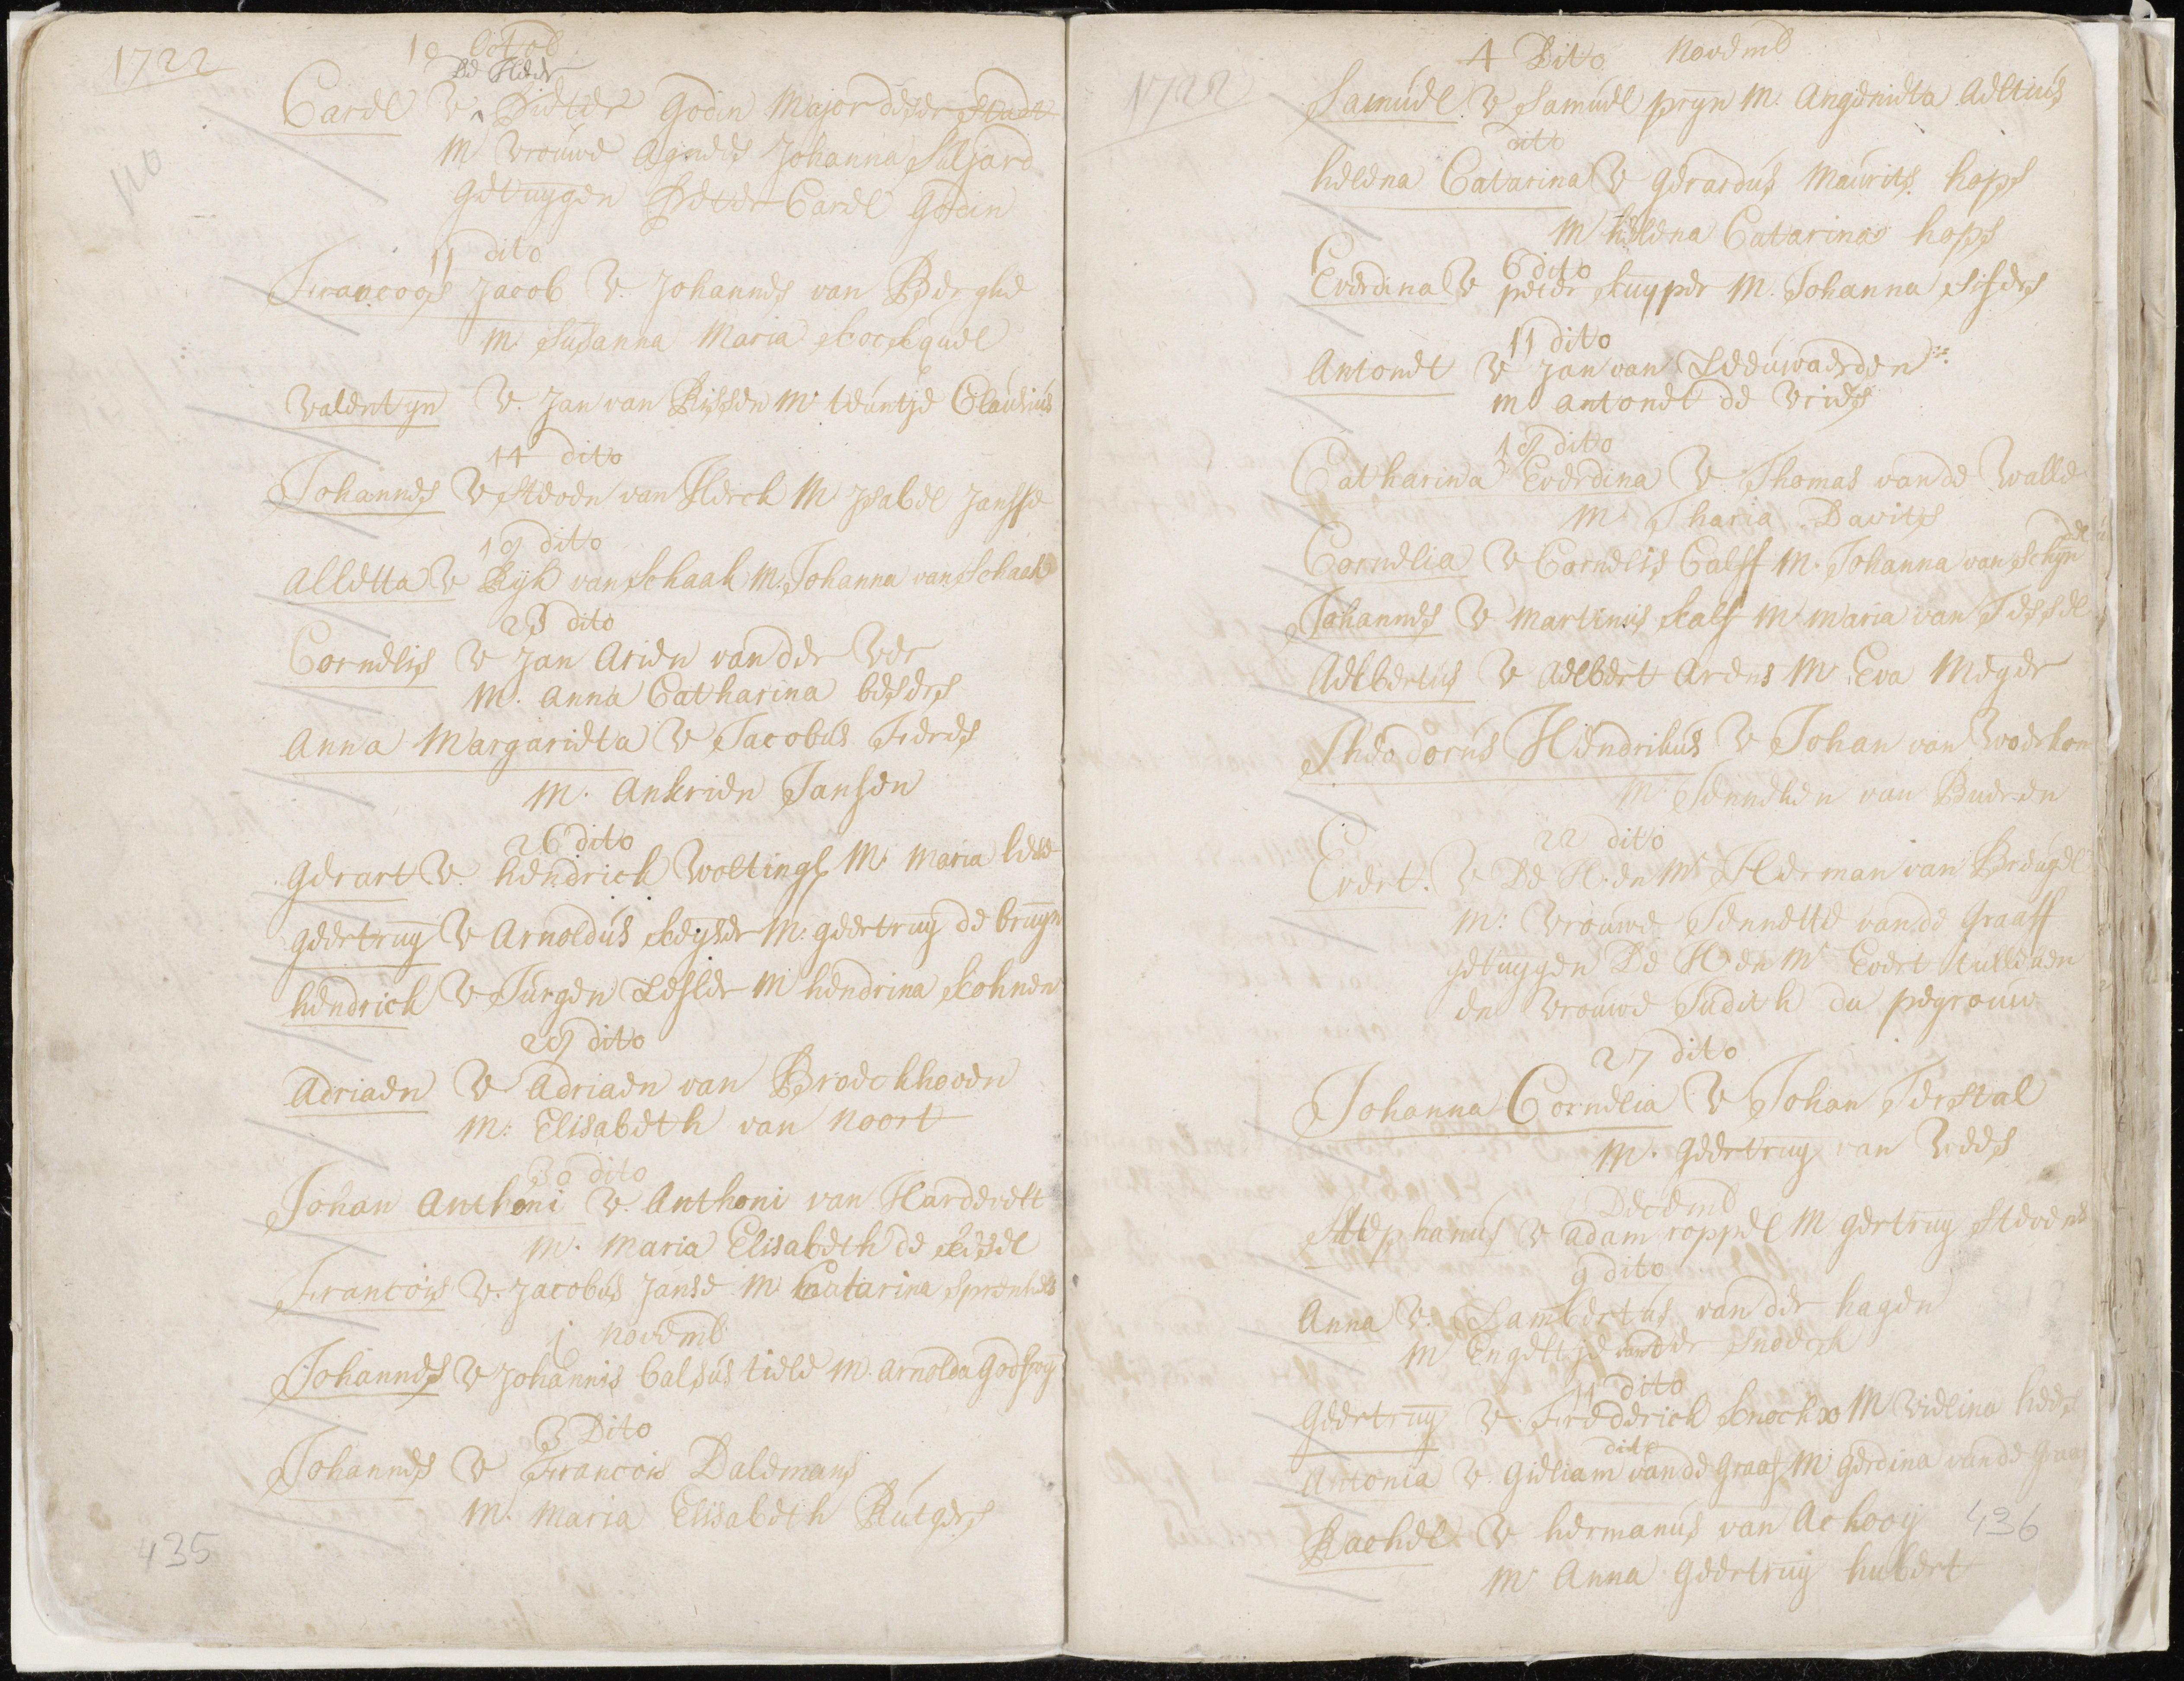 1722
10 Octob
De Heer
Carel V Pieter Godin Major deser Stadt
M. Vrouwe Agnees Johanna Suljard
getuygen Pieter Carel Godin
110
11 dito
Francoos Jacob V. Johannes van Berghe
M. Susanna Maria kockquel
Valentyn V. Jan van Rissen M. teuntje Clausius
14 dito
Johannes V Steven van Herck M Jsabel Jansse
19 dito
Alletta V Ryk van Schaak M. Johanna van Schaak
23 dito
Cornelis V Jan Arien van der Ver
M. Anna Catharina besers
Anna Margarieta V Jacobus Freres
M. Ankrien Jansen
26 dito
Gerart V. hendrick Woltings M. Maria
Geertruy V Arnoldus keyser M. geertruy de bruyn
hendrick V Jurgen Lesler M hendrina kohnen
29 dito
Adriaen V Adriaen van Broeckhoven
M: Elisabeth van Noort
30 dito
Johan Anthoni V. Anthoni van Hardevelt
M. Maria Elisabeth de kesel
Francois V. Jacobus Janse M. Catarina
1 Novemb
Johannes V Johannis Calsus tiele M. Arnolda Godfroy
3 Dito
Johannes V Francois Dalemans
M. Maria Elisabeth Rutgers
435
1722
4 Dito Novemb
Samuel V Samuel pryn M. Angenieta Aeltius
dito
helena Catarina V Gerardus Maurits hops
M helena Catarina hops
6 dito
Everdina V peter kuyper M. Johanna sisers
11 dito
Antonet V Jan van Leeuwaerden
M Antonet de Vries
19 dito
Catharina Everdina V Thomas van de Walle
M. Tharia Davits
Cornelia V Cornelis Calff M. Johanna van Schyn
del
Johannes V Martinus kalf M. Maria van Tessel
Aelbertus V Aelbert Arens M Eva Meyer
Theodorus Hendrikus V Johan van Woerkom
M. Jenneken van Bueren
22 dito
Evert. V De H. en Mr Herman van Breugel
M: Vrouwe Jennette van de Graaff
getuygen De H en Mr Evert tulleken
en Vrouwe Judith du pegrouw
27 dito
Johanna Cornelia V Johan Terstal
M. Geertruy van Wees
Decemb
Stephanus V Adam roppel M gertruy Stevens
9 dito
Anna V. Lambertus van der hagen
M Engeltje van der Snoeck
11 dito
Geertruy V. Frederick knochx M Vielina
dito
Antonia V. Gieliam van de Graaf M Gerdina van de Graa
Rachel V hermanus van Ackooy
M Anna Geertruy hubert
436